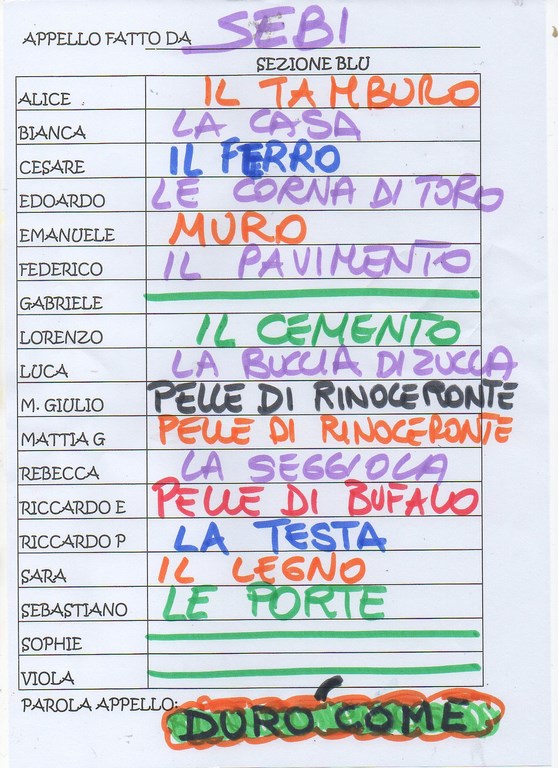 APPELLO FATTO DA SEBI
SEZIONE BLU
ALICE IL TAMBURO
BIANCA LA CASA
CESARE IL FERRO
EDOARDO LE CORNA DI TORO
EMANUELE MURO
FEDERICO IL PAVIMENTO
GABRIELE
LORENZO IL CEMENTO
LUCA LA BUCCIA DI ZUCCA
M. GIULIO PELLE DI RINOCERONTE
MATTIA G PELLE DI RINOCERONTE
REBECCA LA SEGGIOLA
RICCARDO E PELLE DI BUFALO
RICCARDO P LA TESTA
SARA IL LEGNO
SEBASTIANO LE PORTE
SOPHIE
VIOLA
PAROLA APPELLO: DURO COME